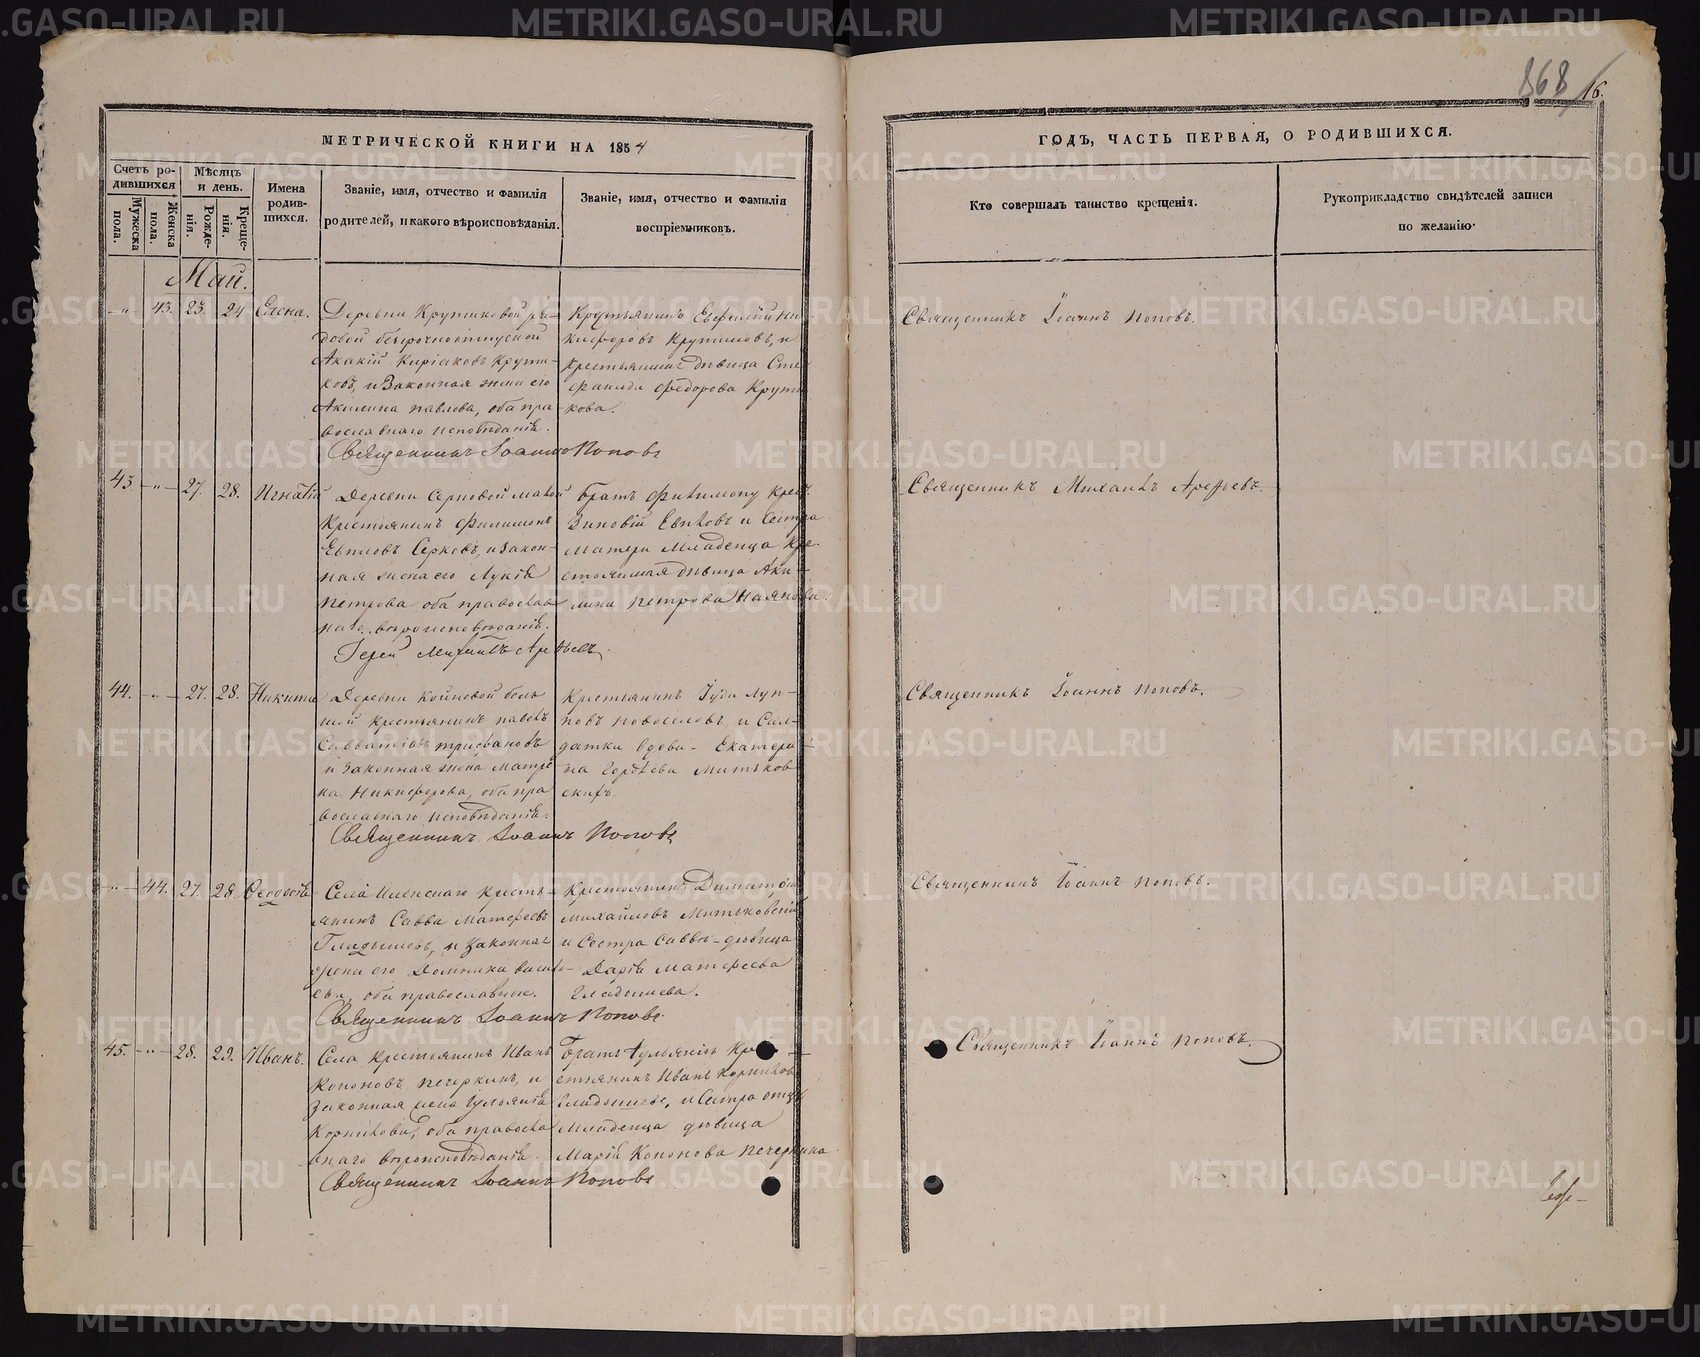 868
16.
МЕТРИЧЕСКОЙ КНИГИ НА 1854
ГОДЪ, ЧАСТЬ ПЕРВАЯ, О РОДИВШИХСЯ.
Счетъ ро-
дившихся
Мужеска
пола.
Женска
пола.
Мѣсяцъ
и день.
Рожде-
нія.
Креще-
нія.
Имена
родив-
шихся.
Званіе, имя, отчество и фамилія
родителей, и какого вѣроисповѣданія.
Званіе, имя, отчество и фамилія
воспріемниковъ.
Кто совершалъ таинство крещенія.
Рукоприкладство свидѣтелей записи
по желанію.
Май.
-"- 43. 23. 24 Елена.
Деревни Крутиковой ря-
довой безсрочноотпускной
Акакій Киріаковъ Крути-
ковъ, и Законная жена его
Акилина Павлова, оба пра-
вославнаго исповѣданія.
Священникъ Іоаннъ Поповъ
Крестьянинъ Евфимій Ни-
кифоровъ Крутиковъ, и
крестьянская дѣвица Сте-
фанида Федорова Крути-
кова.
Священникъ Іоаннъ Поповъ.
43. -"- 27. 28. Игнатій
Деревни Серковой малой
Крестьянинъ Филимонъ
Евпловъ Серковъ, и закон-
ная жена его Лукія
Петрова оба православ
наго вѣроисповѣданія.
Іерей Михаилъ Арефьевъ.
братъ Филимону крес.
Зиновій Евпловъ и Сестра
матери младенца кре-
стьянская дѣвица Аки-
лина Петрова Наянова.
Священникъ Михаилъ Арефьевъ.
44. -"- 27. 28. Никита
Деревни Койновой боль
шой крестьянинъ Павелъ
Савватіевъ
и законная жена Матре
на Никифорова, оба пра
вославнаго исповѣданія.
Священникъ Іоаннъ Поповъ
Крестьянинъ Іуда Луп-
повъ Новоселовъ и Сол-
датка вдова - Екатери-
на Гордѣева Митьков
скихъ.
Священникъ Іоаннъ Поповъ.
-"- 44. 27. 28. Ѳеодосія
Села Иленскаго кресть-
янинъ Савва Матфеевъ
Гладышевъ, и законная
жена его Домника Василь-
ева, оба православные.
Священникъ Іоаннъ Поповъ.
Крестьянинъ Димитрій
Михайловъ Митьковскій
и Сестра Саввы - дѣвица
Дарія Матфеева
Гладышева.
Священникъ Іоаннъ Поповъ.
45. -"- 28. 29. Иванъ.
Села крестьянинъ Иванъ
Кононовъ Печеркинъ, и
законная жена Іуліанія
Корнилова, оба правосла
внаго вѣроисповѣданія.
Священникъ Іоаннъ Поповъ
Братъ Іуліаніи Кре-
стьянинъ Иванъ Корниловъ
Гладышевъ, и Сестра отца
младенца дѣвица
Марія Кононова Печеркина.
Священникъ Іоаннъ Поповъ.
METRIKI.GASO-URAL.RU